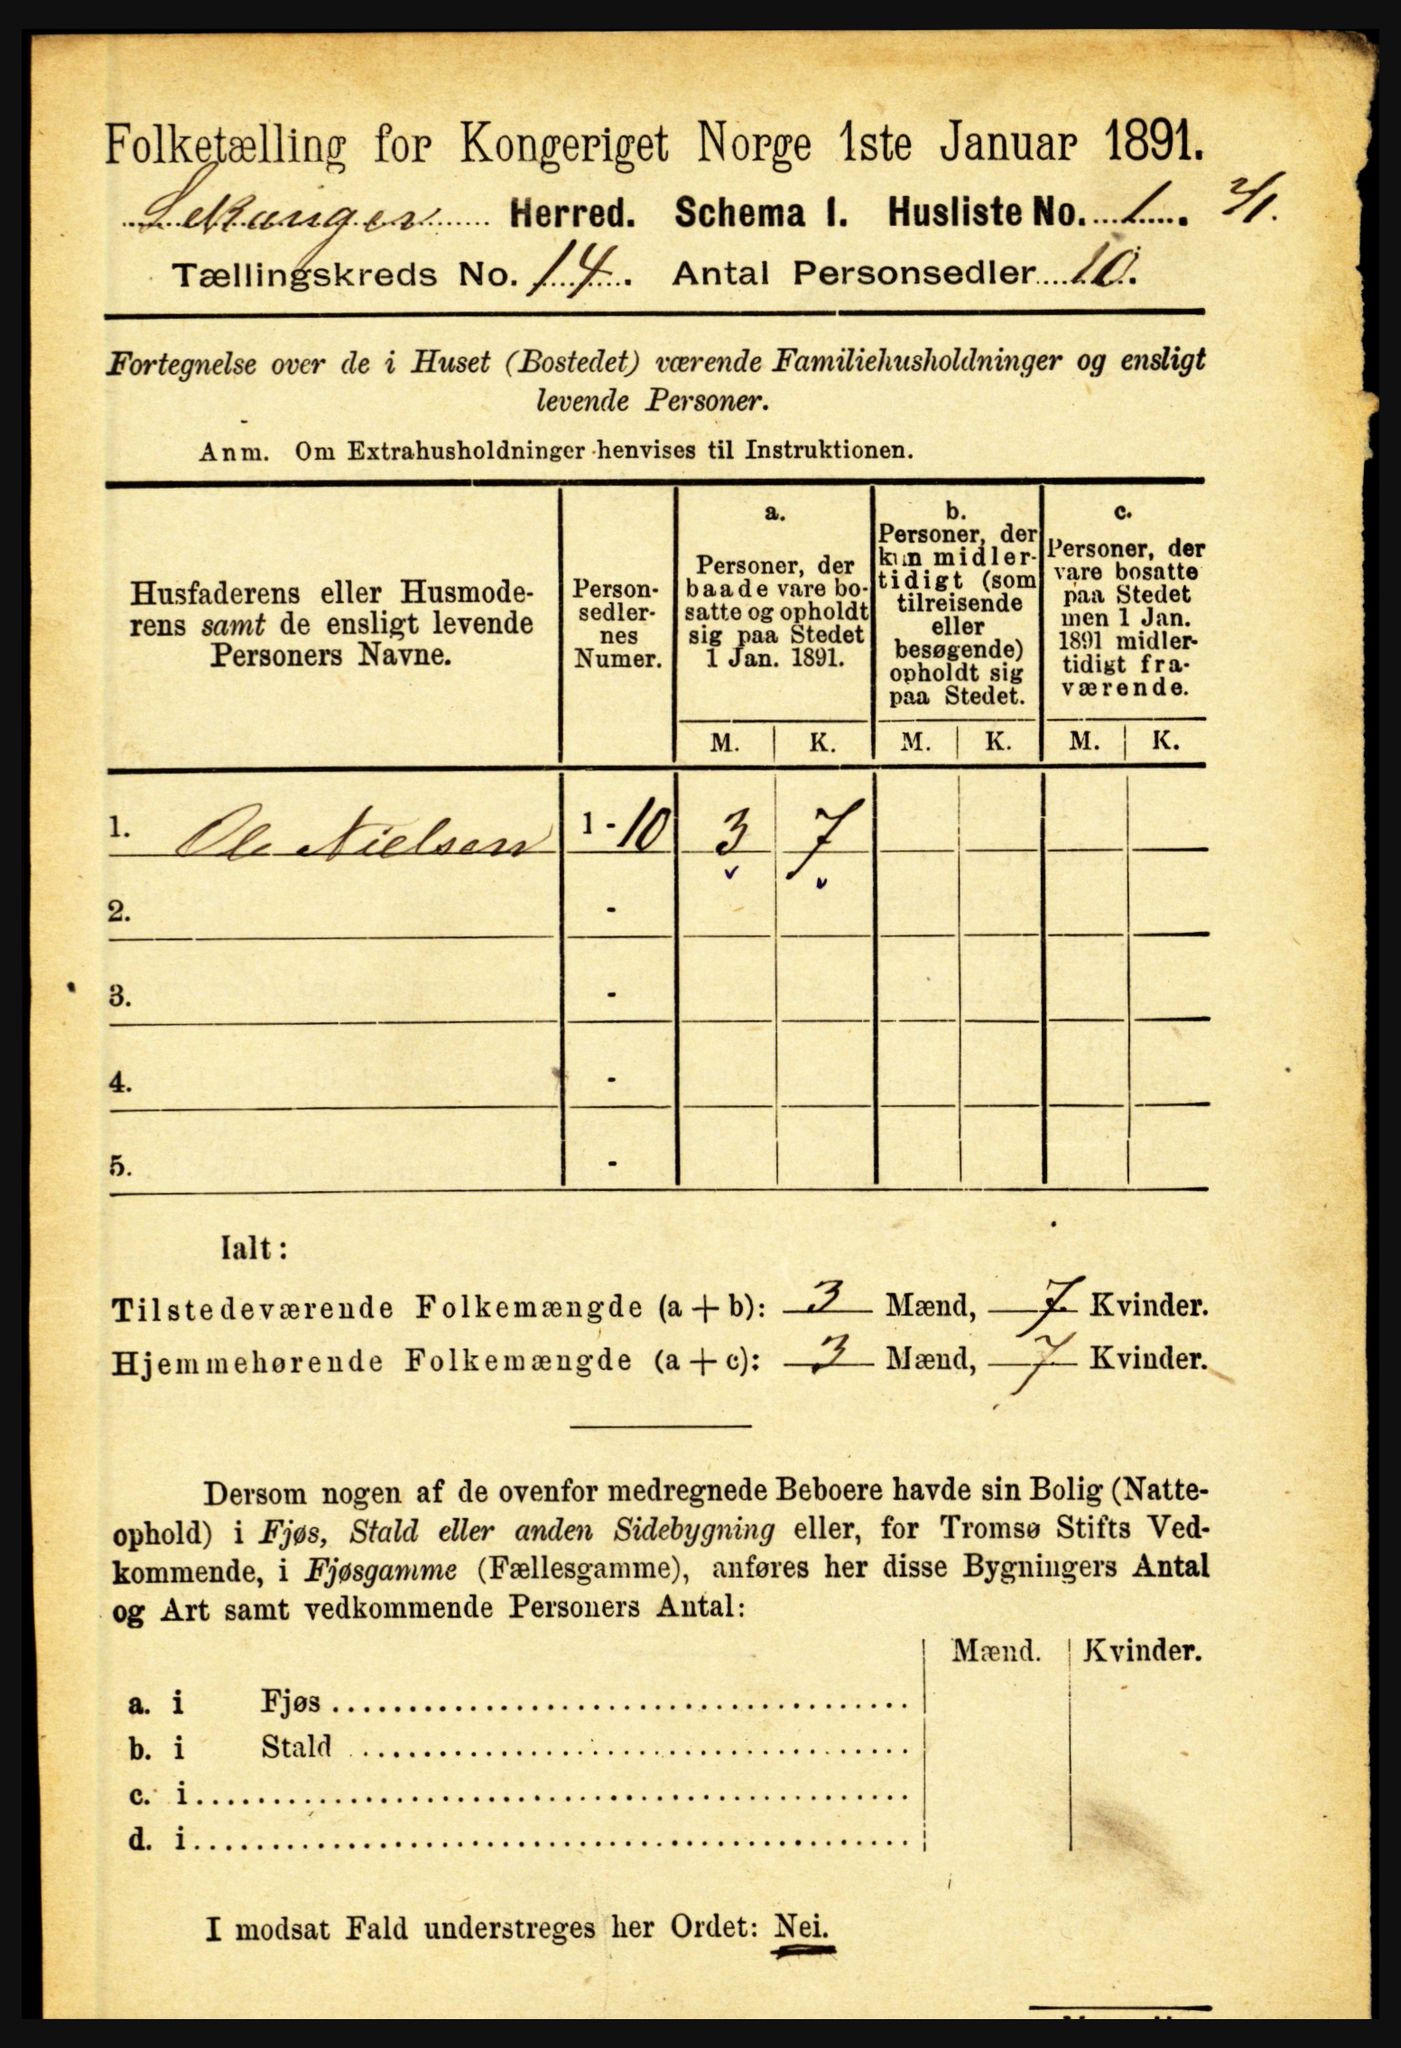 Folketælling for Kongeriget Norge 1ste Januar 1891.
Lekanger Herred. Schema I. Husliste No. 1. 2/1.
Tællingskreds No. 14. Antal Personsedler 10.
Fortegnelse over de i Huset (Bostedet) værende Familiehusholdninger og ensligt
levende Personer.
Anm. Om Extrahusholdninger henvises til Instruktionen.
Husfaderens eller Husmode-
rens samt de ensligt levende
Personers Navne.
Person-
sedler-
nes
Numer.
a.
Personer, der
baade vare bo-
satte og opholdt
sig paa Stedet
1 Jan. 1891.
b.
Personer, der
kun midler-
tidigt (som
tilreisende
eller
besøgende)
opholdt sig
paa Stedet.
c.
Personer, der
vare bosatte
paa Stedet
men 1 Jan.
1891 midler-
tidigt fra-
værende.
M. K. M. K. M. K.
1. Ole Nielsen 1 - 10 3 7
2. -
3. -
4. -
5. -
Ialt:
Tilstedeværende Folkemængde (a + b): 3 Mænd, 7 Kvinder.
Hjemmehørende Folkemængde (a + c): 3 Mænd, 7 Kvinder.
Dersom nogen af de ovenfor medregnede Beboere havde sin Bolig (Natte-
ophold) i Fjøs, Stald eller anden Sidebygning eller, for Tromsø Stifts Ved-
kommende, i Fjøsgamme (Fællesgamme), anføres her disse Bygningers Antal
og Art samt vedkommende Personers Antal:
Mænd. Kvinder.
a. i Fjøs
b. i Stald
c. i
d. i
I modsat Fald understreges her Ordet: Nei.